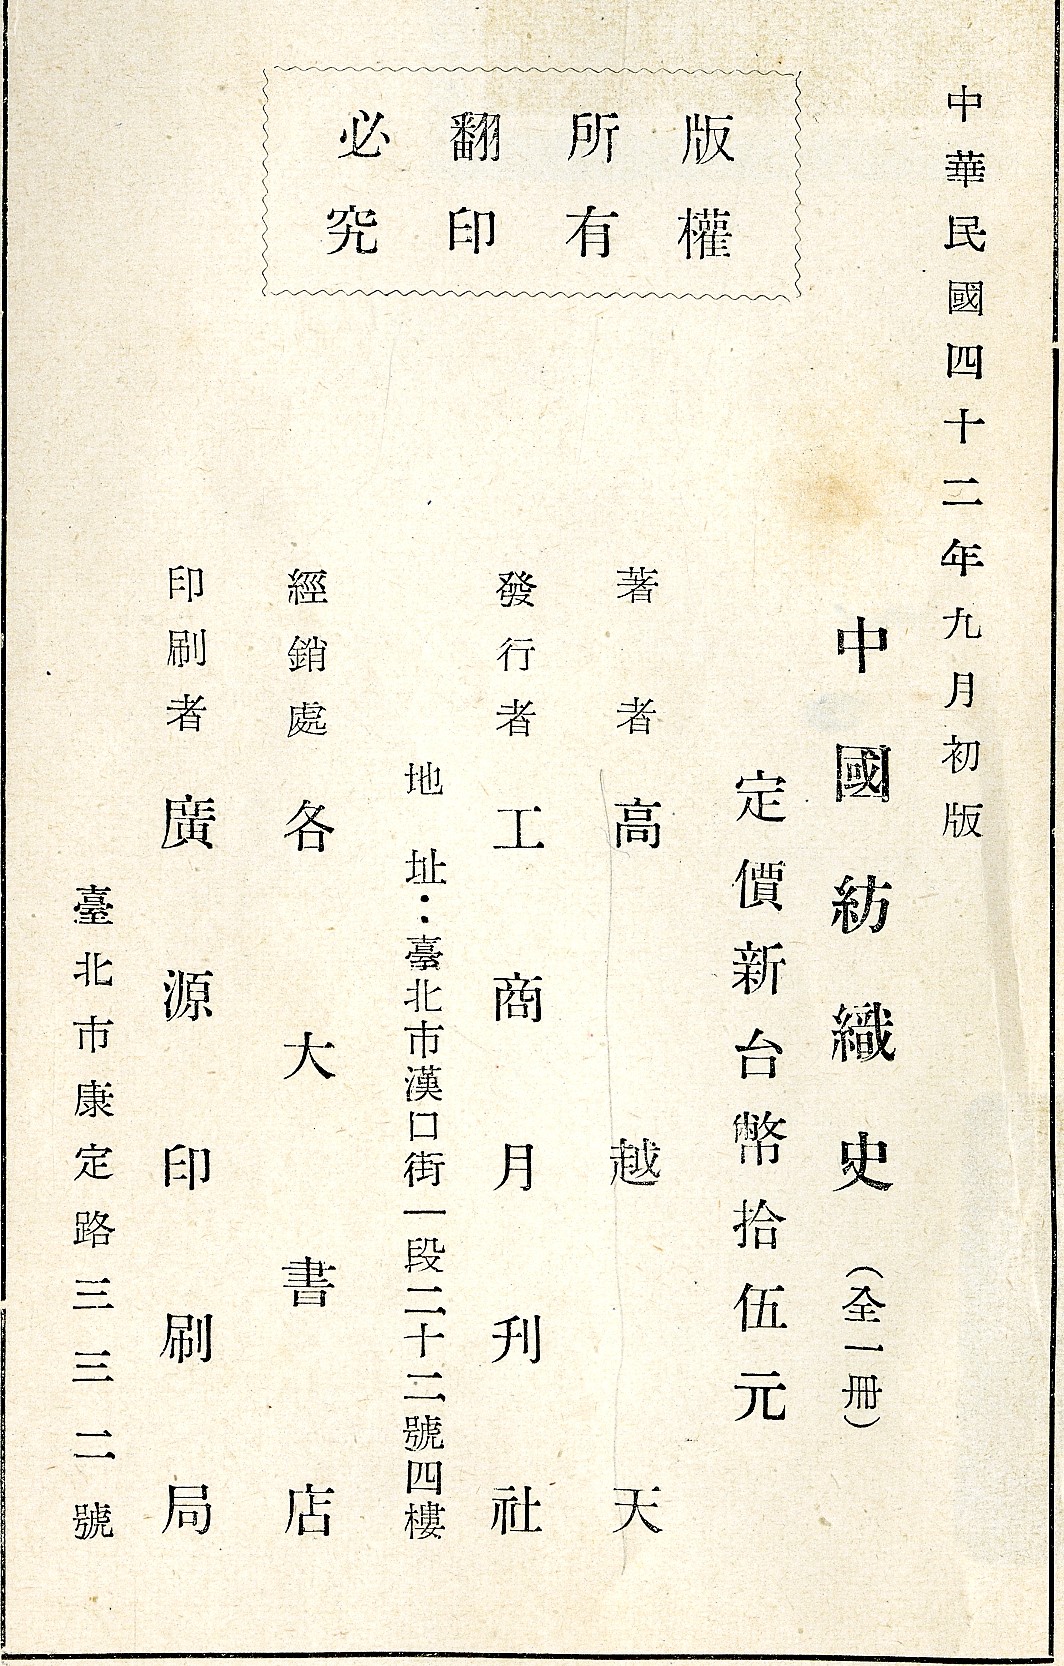 中華民國四十二年九月初版
中國紡織史（全一冊）
定價新台幣拾伍元
版權
所有
翻印
必究
著者高越天
發行者工商月刋社
地址：臺北市漢口街一段二十二號四樓
經銷處各大書店
印刷者廣源印刷局
臺北市康定路三三二號